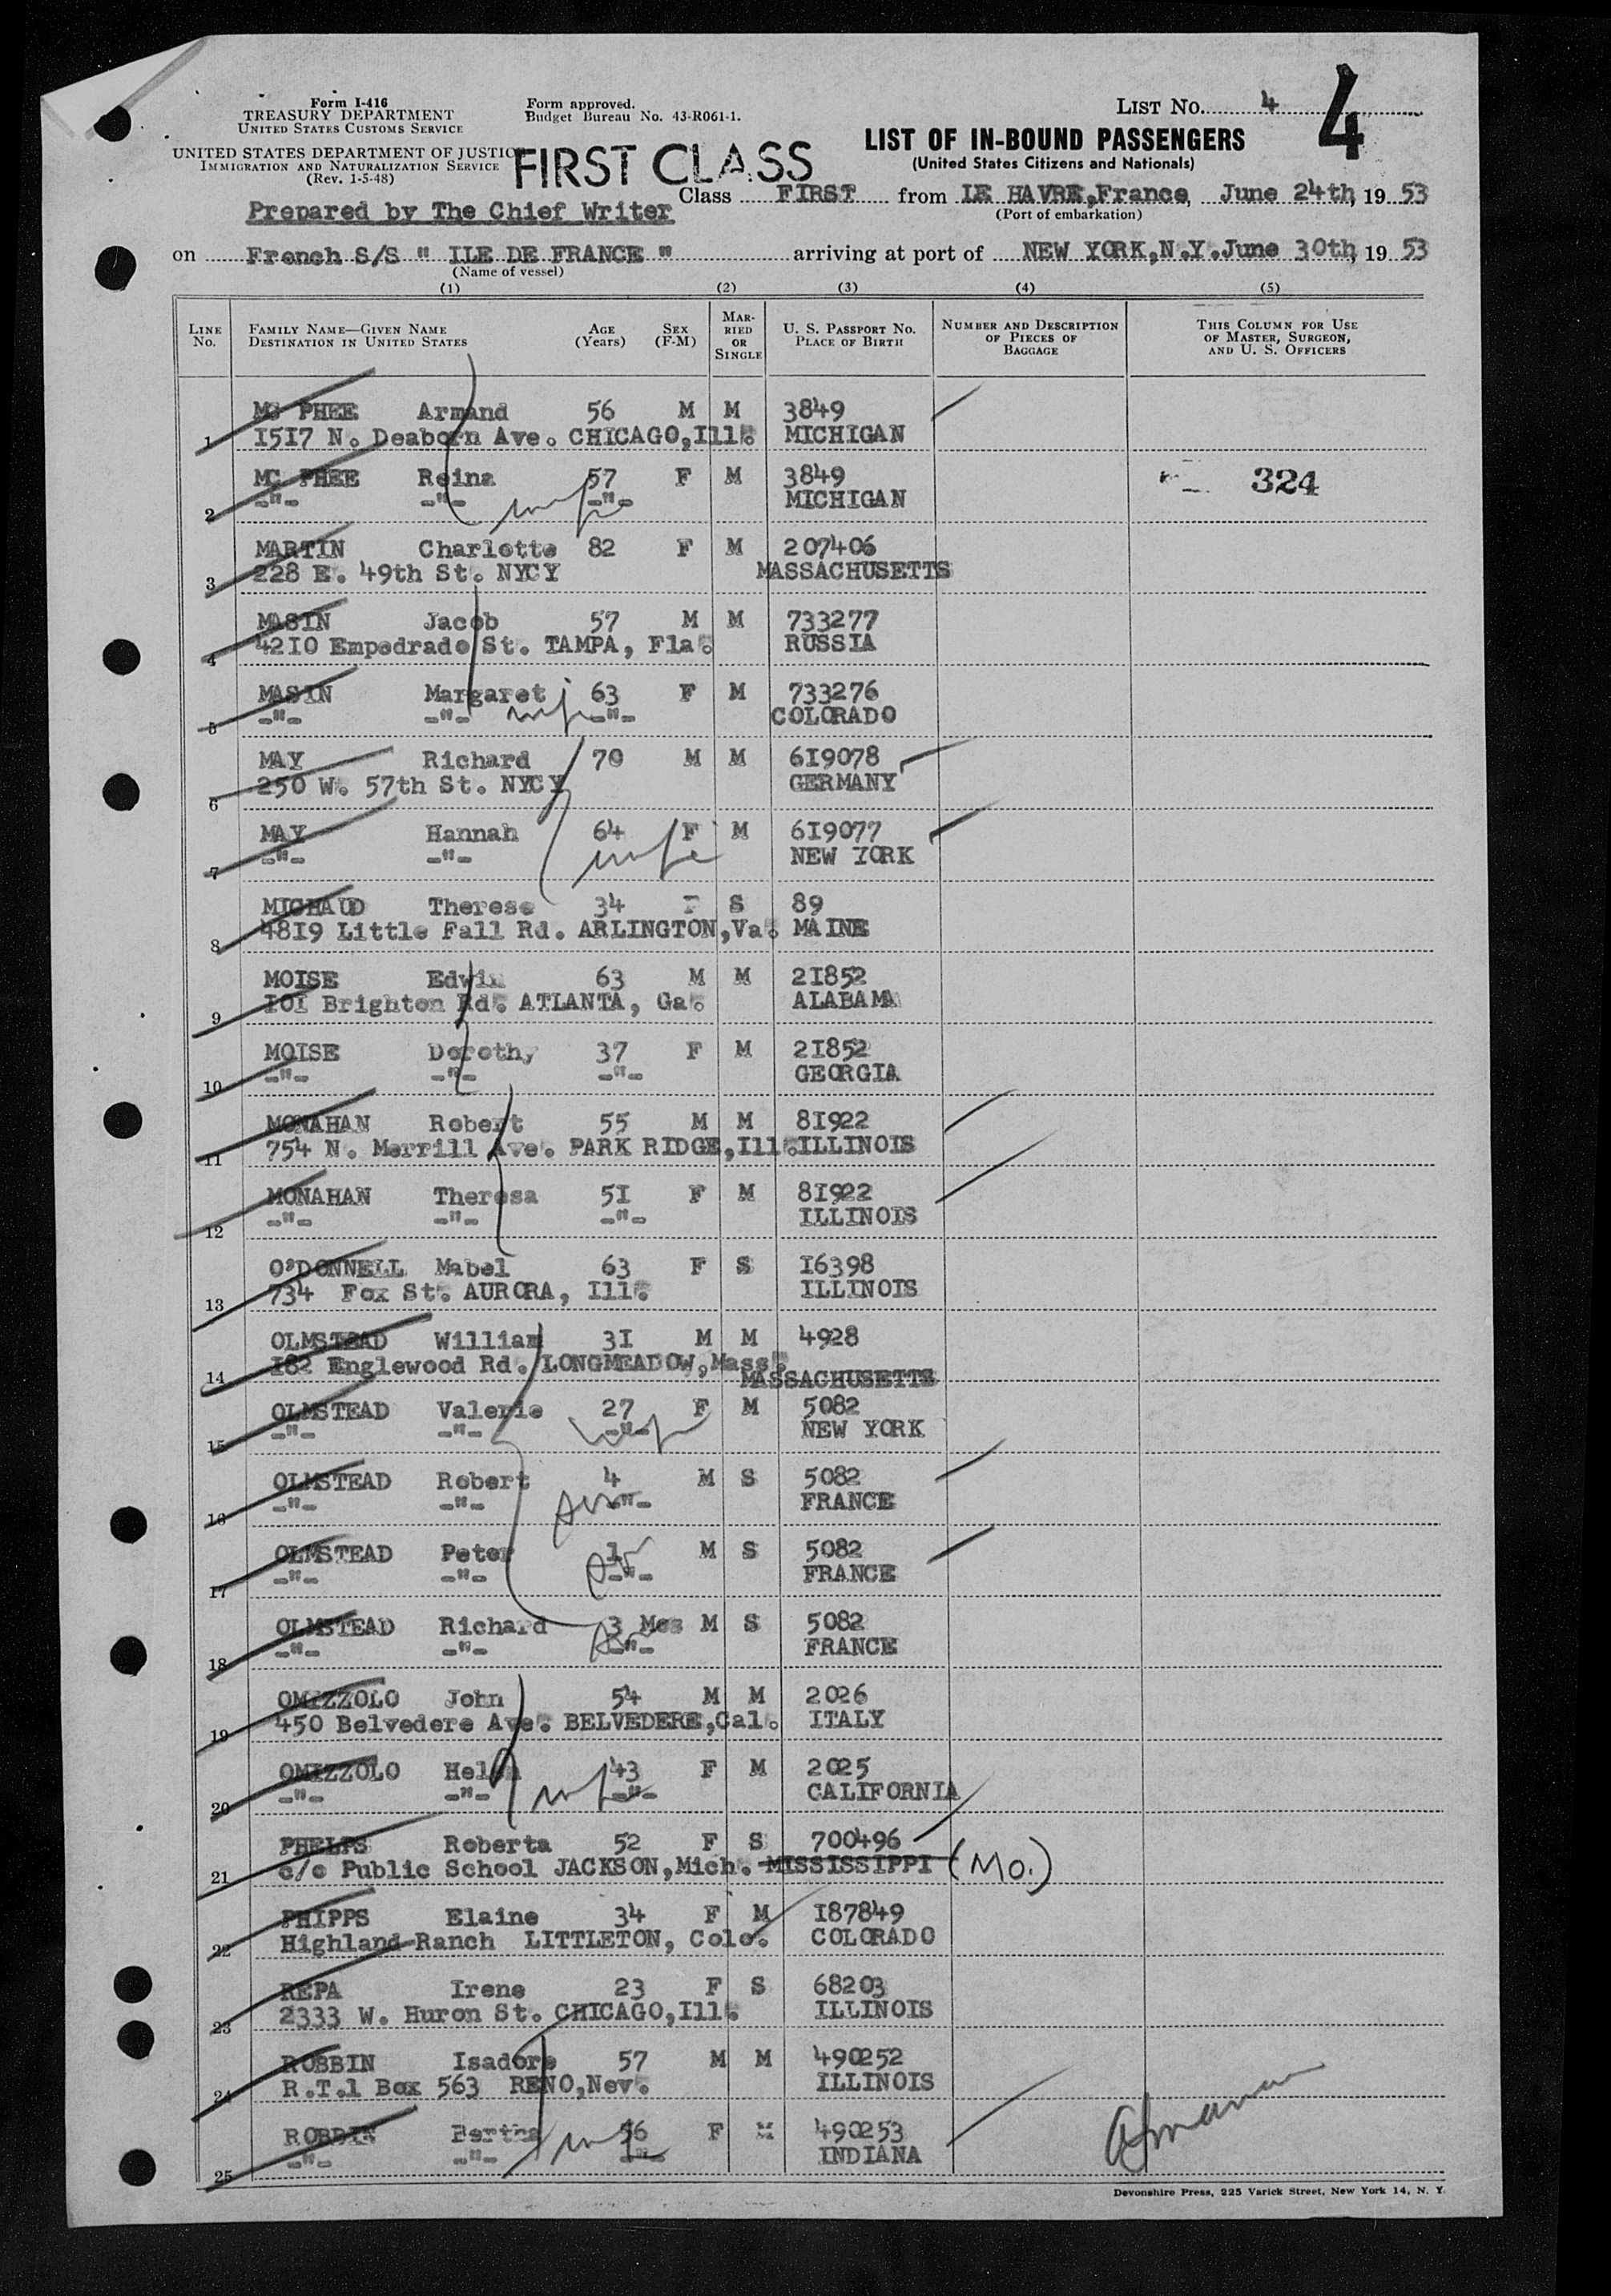 Form I-416
TREASURY DEPARTMENT
UNITED STATES CUSTOMS SERVICE
UNITED STATES DEPARTMENT OF JUSTICE
IMMIGRATION AND NATURALIZATION SERVICE
(Rev. 1-5-48)
Form approved.
Budget Bureau No. 43-R061-1.
LIST No. 4
4
LIST OF IN-BOUND PASSENGERS
(United States Citizens and Nationals)
FIRST CLASS
Class FIRST from LE HAVRE,France, June 24th, 19 53
(Port of embarkation)
Prepared by The Chief Writer
on French S/S " ILE DE FRANCE " arriving at port of NEW YORK,N.Y.June 30th, 19 53
(Name of vessel)
(1) (2) (3) (4) (5)
LINE No. FAMILY NAME—GIVEN NAME DESTINATION IN UNITED STATES AGE (Years) SEX (F-M) MARRIED OR SINGLE U. S. PASSPORT NO. PLACE OF BIRTH NUMBER AND DESCRIPTION OF PIECES OF BAGGAGE THIS COLUMN FOR USE OF MASTER, SURGEON, AND U. S. OFFICERS
MC PHEE Armand 56 M M 3849
1 1517 N. Deaborn Ave. CHICAGO,Ill. MICHIGAN
MC PHEE Reina 57 F M 3849 324
2 -"- -"- wife -"- MICHIGAN
MARTIN Charlotte 82 F M 207406
3 228 E. 49th St. NYCY MASSACHUSETTS
MASIN Jacob 57 M M 733277
4 4210 Empedrado St. TAMPA, Fla. RUSSIA
MASIN Margaret 63 F M 733276
5 -"- -"- wife -"- COLORADO
MAY Richard 70 M M 619078
6 250 W. 57th St. NYCY GERMANY
MAY Hannah 64 F M 619077
7 -"- -"- wife NEW YORK
MICHAUD Therese 34 F S 89
8 4819 Little Fall Rd. ARLINGTON,Va. MAINE
MOISE Edwin 63 M M 21852
9 101 Brighton Rd. ATLANTA, Ga. ALABAMA
MOISE Dorothy 37 F M 21852
10 -"- -"- -"- GEORGIA
MONAHAN Robert 55 M M 81922
11 754 N. Merrill Ave. PARK RIDGE,Ill. ILLINOIS
MONAHAN Theresa 51 F M 81922
12 -"- -"- -"- ILLINOIS
O'DONNELL Mabel 63 F S 16398
13 734 Fox St. AURORA, Ill. ILLINOIS
OLMSTEAD William 31 M M 4928
14 182 Englewood Rd. LONGMEADOW,Mass.
MASSACHUSETTS
OLMSTEAD Valerie 27 F M 5082
15 -"- -"- wife -"- NEW YORK
OLMSTEAD Robert 4 M S 5082
16 -"- -"- son -"- FRANCE
OLMSTEAD Peter 1 M S 5082
17 -"- -"- -"- FRANCE
OLMSTEAD Richard 3 Mos M S 5082
18 -"- -"- -"- FRANCE
OMIZZOLO John 54 M M 2026
19 450 Belvedere Ave. BELVEDERE,Cal. ITALY
OMIZZOLO Helen 43 F M 2025
20 -"- -"- wife -"- CALIFORNIA
PHELPS Roberta 52 F S 700496
21 c/o Public School JACKSON,Mich. MISSISSIPPI (MO.)
PHIPPS Elaine 34 F M 187849
22 Highland Ranch LITTLETON, Colo. COLORADO
REPA Irene 23 F S 68203
23 2333 W. Huron St. CHICAGO,Ill. ILLINOIS
ROBBIN Isadore 57 M M 490252
24 R.T.1 Box 563 RENO,Nev. ILLINOIS
ROBBIN Bertha 56 F M 490253
25 -"- -"- wife -"- INDIANA
Devonshire Press, 225 Varick Street, New York 14, N. Y.